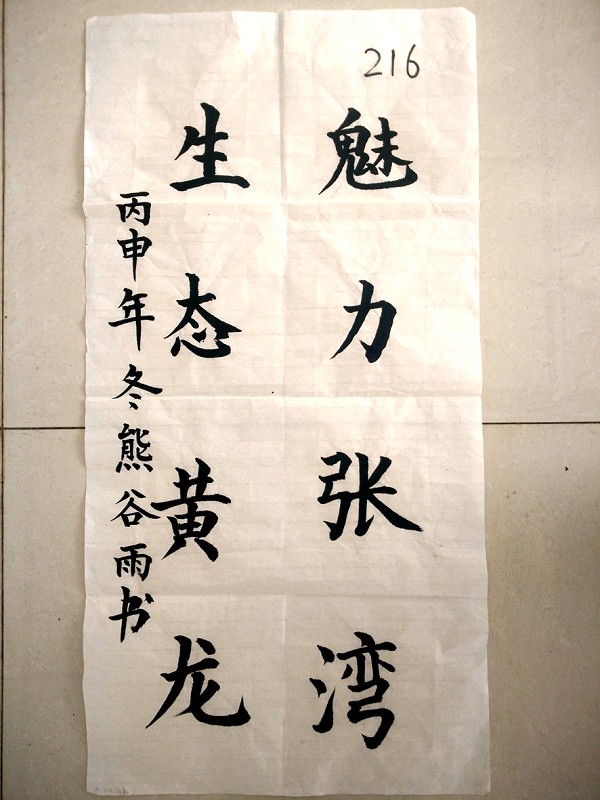 216
魅力张湾
生态黄龙
丙申年冬熊谷雨书